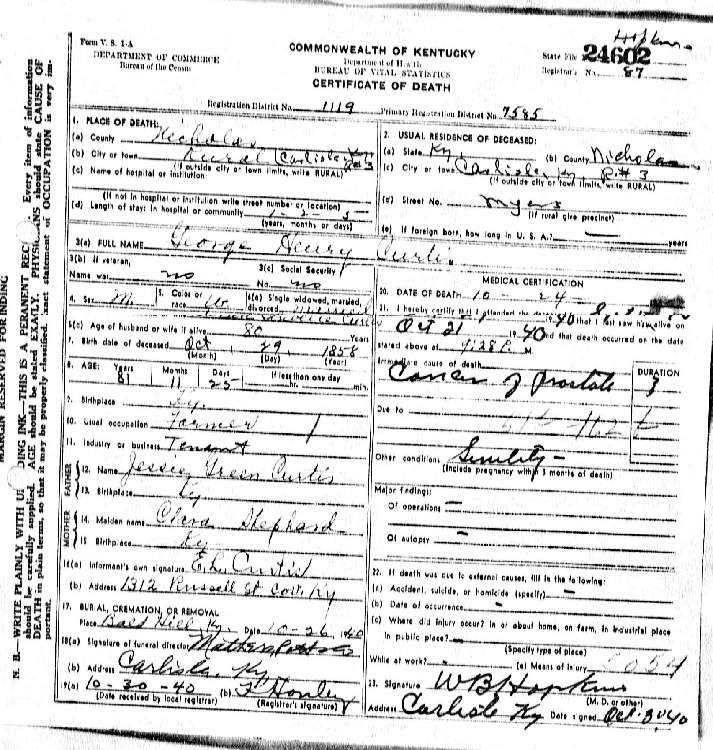 Hopkins
Form V. S. 1-A
DEPARTMENT OF COMMERCE
Bureau of the Census
COMMONWEALTH OF KENTUCKY
Department of Health
BUREAU OF VITAL STATISTICS
CERTIFICATE OF DEATH
State File No. 24602
Registrar's No. 87
Registration District No. 1119 Primary Registration District No. 7585
1. PLACE OF DEATH:
(a) County Nicholas
(b) City or town Rural Carlisle Ky R#3
(If outside city or town limits, write RURAL)
(c) Name of hospital or institution:
(If not in hospital or institution write street number or location)
(d) Length of stay: In hospital or community 1-2-5-
(years, months or days)
2. USUAL RESIDENCE OF DECEASED:
(a) State Ky (b) County Nicholas
(c) City or town Carlisle Ky, R#3
(If outside city or town limits, write RURAL)
(d) Street No. Myers
(If rural give precinct)
(e) If foreign born, how long in U. S. A.? — years
3(a) FULL NAME George Henry Curtis
3(b) If veteran, Name war no
3(c) Social Security No. no
4. Sex M 5. Color or race W 6(a) Single widowed, married, divorced
6(c) Age of husband or wife if alive 80 years
7. Birth date of deceased Oct 29, 1858
(Month) (Day) (Year)
8. AGE: Years 81 Months 11 Days 25 If less than one day hr. min.
9. Birthplace Ky.
10. Usual occupation Farmer
11. Industry or business Tenant
FATHER
12. Name Jessie Green Curtis
13. Birthplace Ky
MOTHER
14. Maiden name Clora Shephard
15 Birthplace Ky
16(a) Informant's own signature Curtis
(b) Address 1312 Russell St Cov. Ky
17. BURIAL, CREMATION, OR REMOVAL
Place Bald Hill Ky. Date 10-26, 40
18(a) Signature of funeral director
(b) Address Carlisle, Ky
19(a) 10-30-40 (b)
(Date received by local registrar) (Registrar's signature)
MEDICAL CERTIFICATION
20. DATE OF DEATH 10 - 24 -
21. I hereby certify that I attended the deceased
1940 that I last saw him alive on
Oct 21 1940 and that death occurred on the date
stated above at 9:28 P. M.
Immediate cause of death
Cancer of prostate
DURATION
Due to
Other conditions Senility -
(Include pregnancy within 3 months of death)
Major findings:
Of operations —
Of autopsy —
22. If death was due to external causes, fill in the following:
(a) Accident, suicide, or homicide (specify) —
(b) Date of occurrence. —
(c) Where did injury occur? In or about home, on farm, in industrial place
in public place? —
(Specify type of place)
While at work? — (e) Means of injury
23. Signature W B Hopkins
(M. D. or other)
Address Carlisle Ky Date signed Oct. 30 40
MARGIN RESERVED FOR BINDING
N. B.—WRITE PLAINLY WITH DING INK—THIS IS A PERMANENT REC Every item of information
should be carefully supplied. AGE should be stated EXACTLY. PHYSICIANS should state CAUSE OF
DEATH in plain terms, so that it may be properly classified. Exact statement of OCCUPATION is very im-
portant.